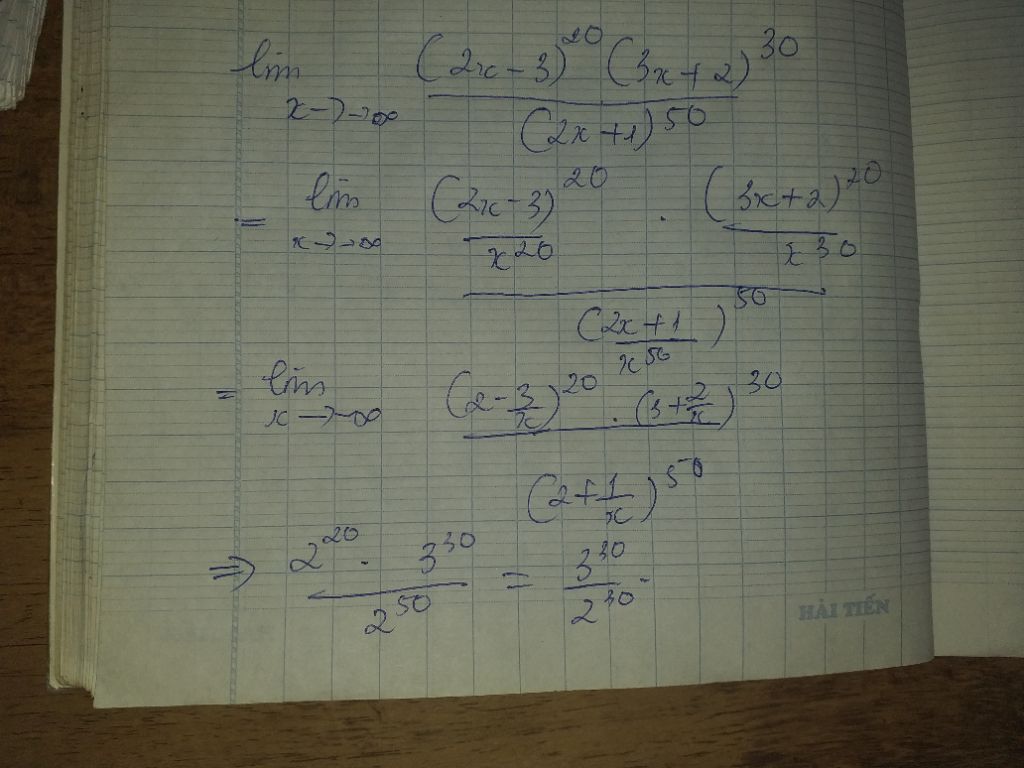 lim (2x-3)^20 (3x+2)^30
x→-∞ (2x+1)^50
= lim (2x-3)^20 . (3x+2)^20
x→-∞ x^20 x^30
(2x+1)^50
x^50
= lim (2-3/x)^20 . (3+2/x)^30
x→-∞
(2+1/x)^50
⇒ 2^20 . 3^30 / 2^50 = 3^30 / 2^30 .
HẢI TIẾN